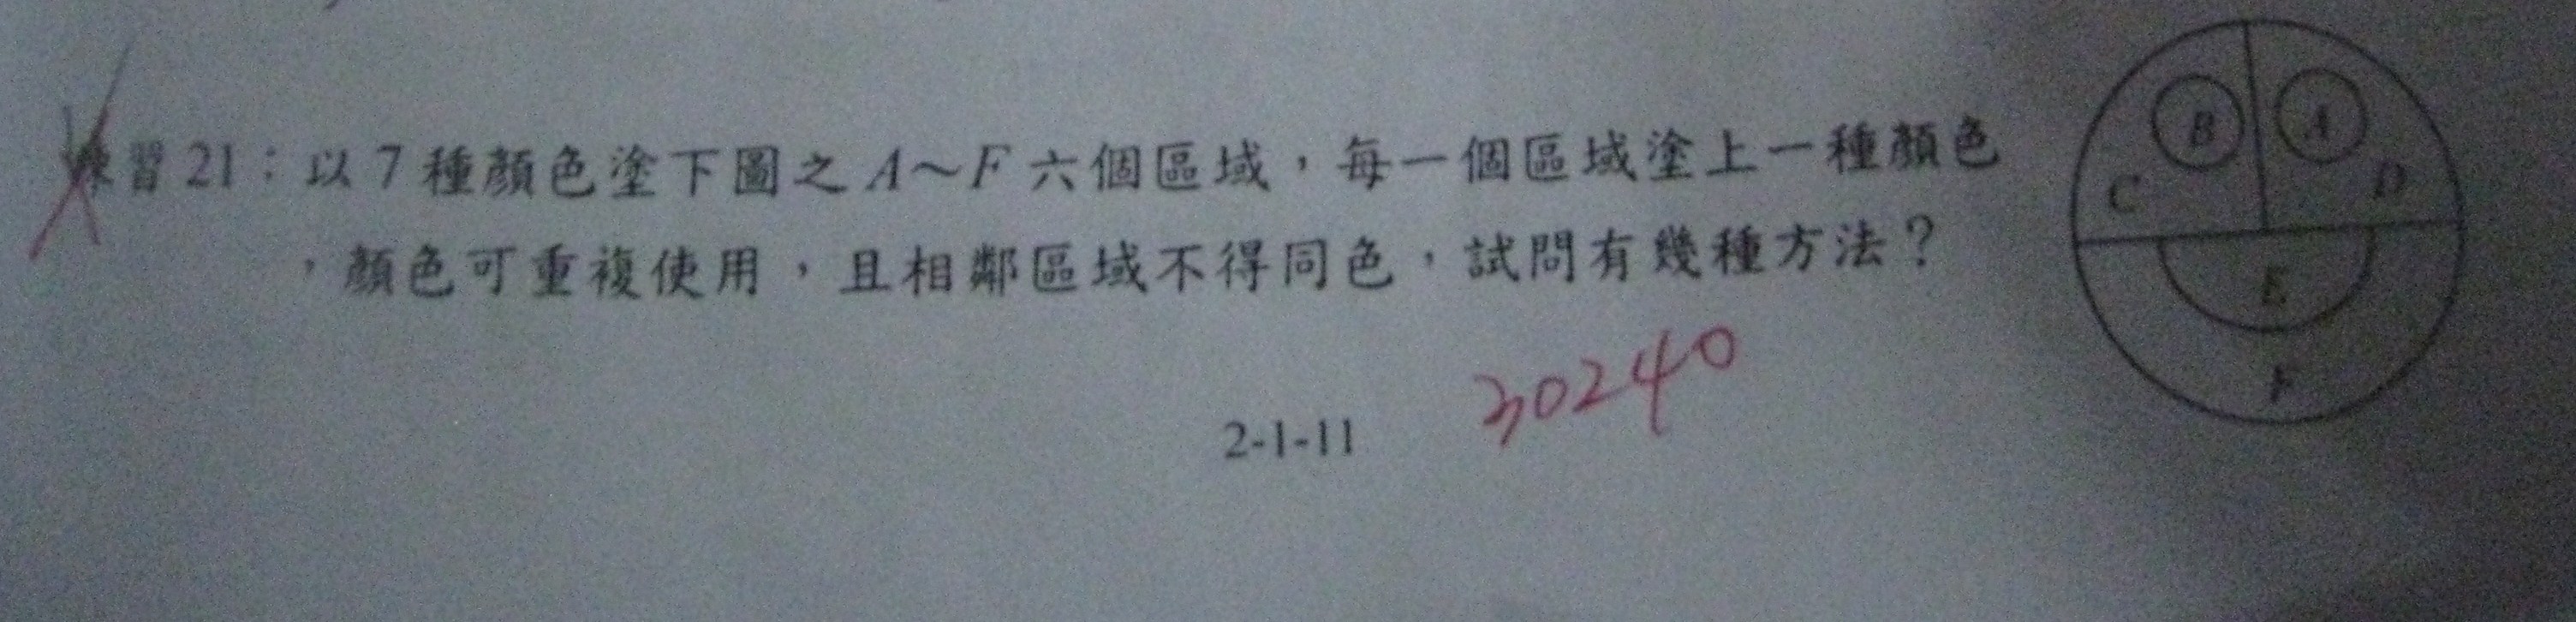 練習21：以7種顏色塗下圖之A～F六個區域，每一個區域塗上一種顏色
，顏色可重複使用，且相鄰區域不得同色，試問有幾種方法？
B A
C D
E
F
30240
2-1-11